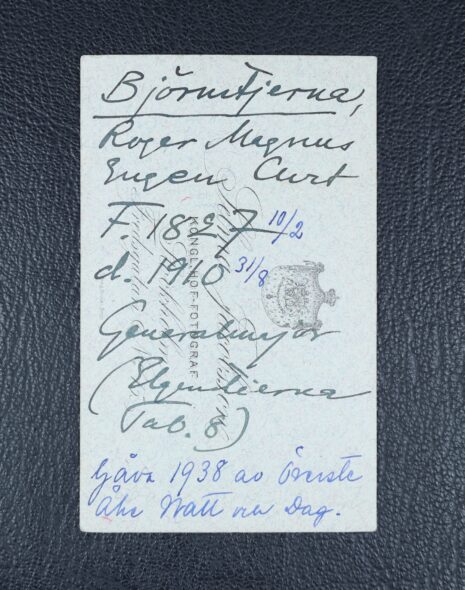 Björnstjerna,
Roger Magnus
Eugen Curt
F. 1857 10/2
d. 1910 31/8
Generalmajor
(Elgenstierna
Tab. 8)
Gåva 1938 av Överste
Åke Natt och Dag.
KONGL. HOF-FOTOGRAF